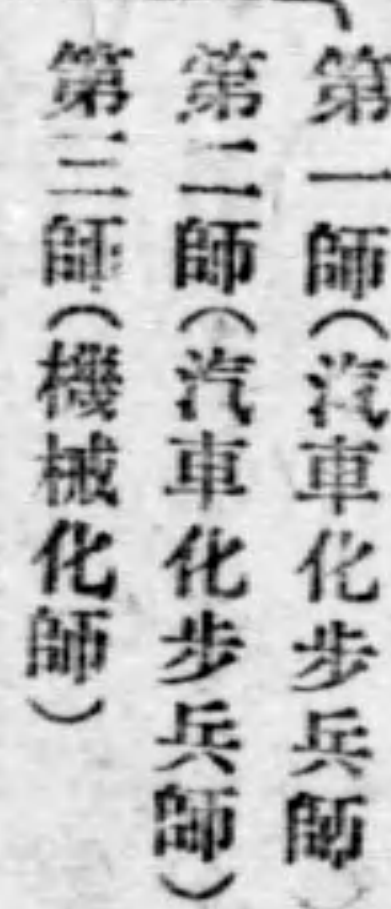 第一師(汽車化步兵師)
第二師(汽車化步兵師)
第三師(機械化師)